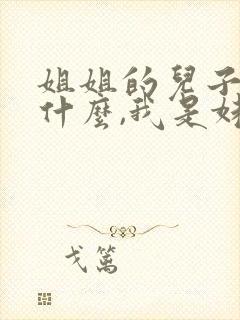 姐姐的兒子
什麼,我是妹
戈篱